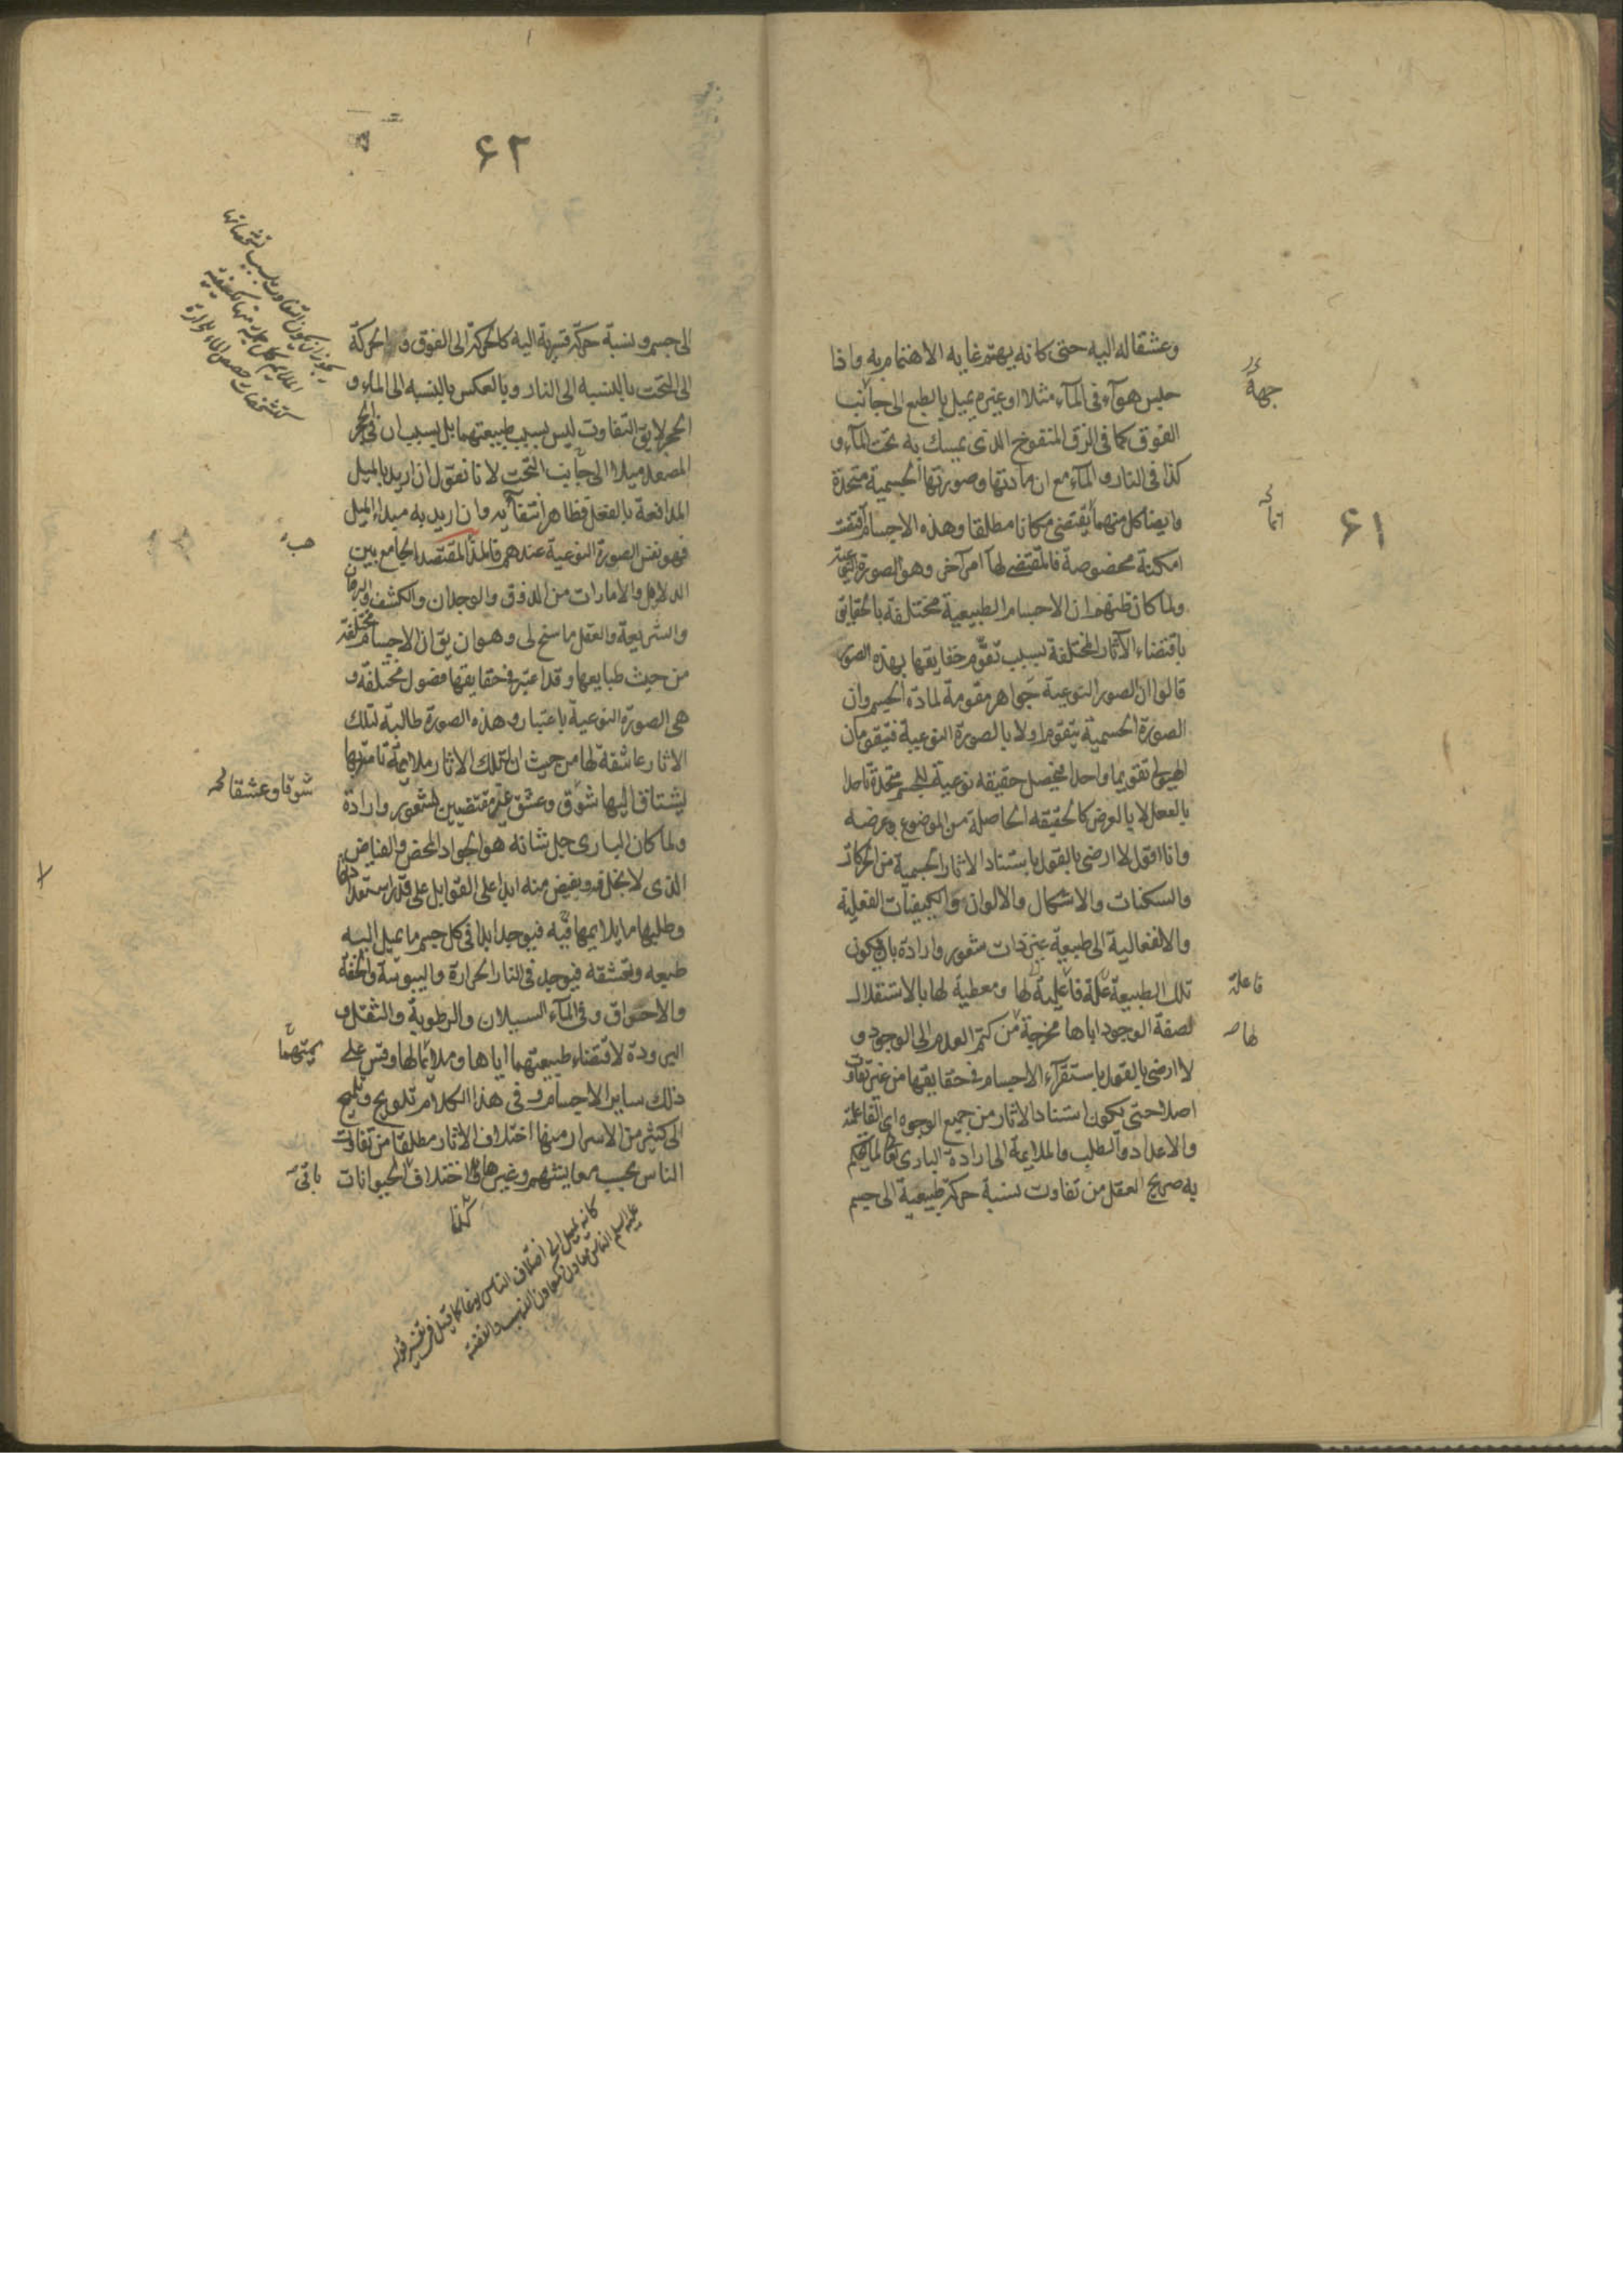 ۶۱
وعشقا له اليه حتى كانه يهتم غاية الاهتمام به واذا
حبس هوآء فى المآء مثلا او غيره يميل بالطبع الى جانب
جهة
الفوق كما فى الزق المنفوخ الذى يمسك به تحت المآء و
كذا فى النار و المآء مع ان مادتها وصورتها الجسمية متحدة
وايضا كل منهما يقتضى مكانا مطلقا وهذه الاجسام اقتضت
امكنة مخصوصة فالمقتضى لها امر آخر وهو الصورة النوعية
ولما كان ظنهم ان الاجسام الطبيعية مختلفة بالحقايق
باقتضاء الآثار المختلفة بسبب تقوم حقايقها بهذه الصور
قالوا ان الصور النوعية جواهر مقومة لمادة الجسم وان
الصورة الجسمية يتقوم اولا بالصورة النوعية فتيقومان
الهيولى تقويما واحدا فيحصل حقيقه نوعية للجسم متحدة
بالفعل لا بالعرض كالحقيقه الحاصلة من الموضوع وعرضه
وانا اقول لا ارضى بالقول باستناد الاثار الجسمية من الحركات
والسكنات والاشكال والالوان والكيفيات الفعلية
والانفعالية الى طبيعة غير ذات شعور وارادة بان يكون
تلك الطبيعة علة فاعلية لها ومعطية لها بالاستقلال
فاعلة
لصفة الوجود اياها مخرجة من كتم العدم الى الوجود و
لها
لا ارضى بالقول باستقرآء الاجسام فى حقايقها من غير تفاوت
اصلا حتى يكون استناد الاثار من جميع الوجوه اى الفاعلية
والاعداد والطلب والملايمة الى ارادة البارى تعالى لما يحكم
به صريح العقل من تفاوت نسبة حركة طبيعية الى جسم
۶۲
الى جسم ونسبة حركة قسرية اليه كالحركة الى الفوق والحركة
الى التحت بالنسبه الى النار وبالعكس بالنسبه الى المآء و
الحجر لا يق التفاوت ليس بسبب طبيعتهما بل بسبب ان فى الحجر
المصعد ميلا الى جانب التحت لانا نقول ان اريد بالميل
المدافعة بالفعل فظاهر انتفآئه وان اريد به مبداء الميل
فهو نفس الصورة النوعية عندهم فالمقتصد الجامع بين
الدلايل والامارات من الذوق والوجدان والكشف والبرهان
والشريعة والعقل ما سنح لى وهو ان يق ان الاجسام مختلفة
من حيث طبايعها وقد اعتبر فى حقايقها فصول مختلفة و
هى الصورة النوعية باعتبار وهذه الصورة طالبة لتلك
الاثار عاشقة لها من حيث ان لتلك الاثار ملايمة تامة بها
يشتاق اليها شوق وعشق غير مقتضيين لشعور وارادة
شوقا وعشقا
ولما كان البارى جل شانه هو الجواد المحض والفياض
الذى لا بخل فيه ويفيض منه ابدا على القوابل على قدر استعداداتها
وطلبها ما يلايمها فيه فيوجد ابدا فى كل جسم ما يميل اليه
طبعه وتعشقه فيوجد فى النار الحرارة واليبوسة والخفة
والاحراق وفى المآء السيلان والرطوبة والثقل و
البرودة لاقتضاء طبيعتهما اياها وملائمتها لها وقس على
ذلك ساير الاجسام و فى هذا الكلام تلويح وتلميح
الى كثير من الاسرار منها اختلاف الاثار مطلقا من تفاوت
الناس بحسب معايشهم وغيرها واختلاف الحيوانات
كذا
كانه يميل الى اختلاف الناس نوعا كما قيل فى تفسير قوله
عليه السلم الناس معادن كمعادن الذهب والفضة